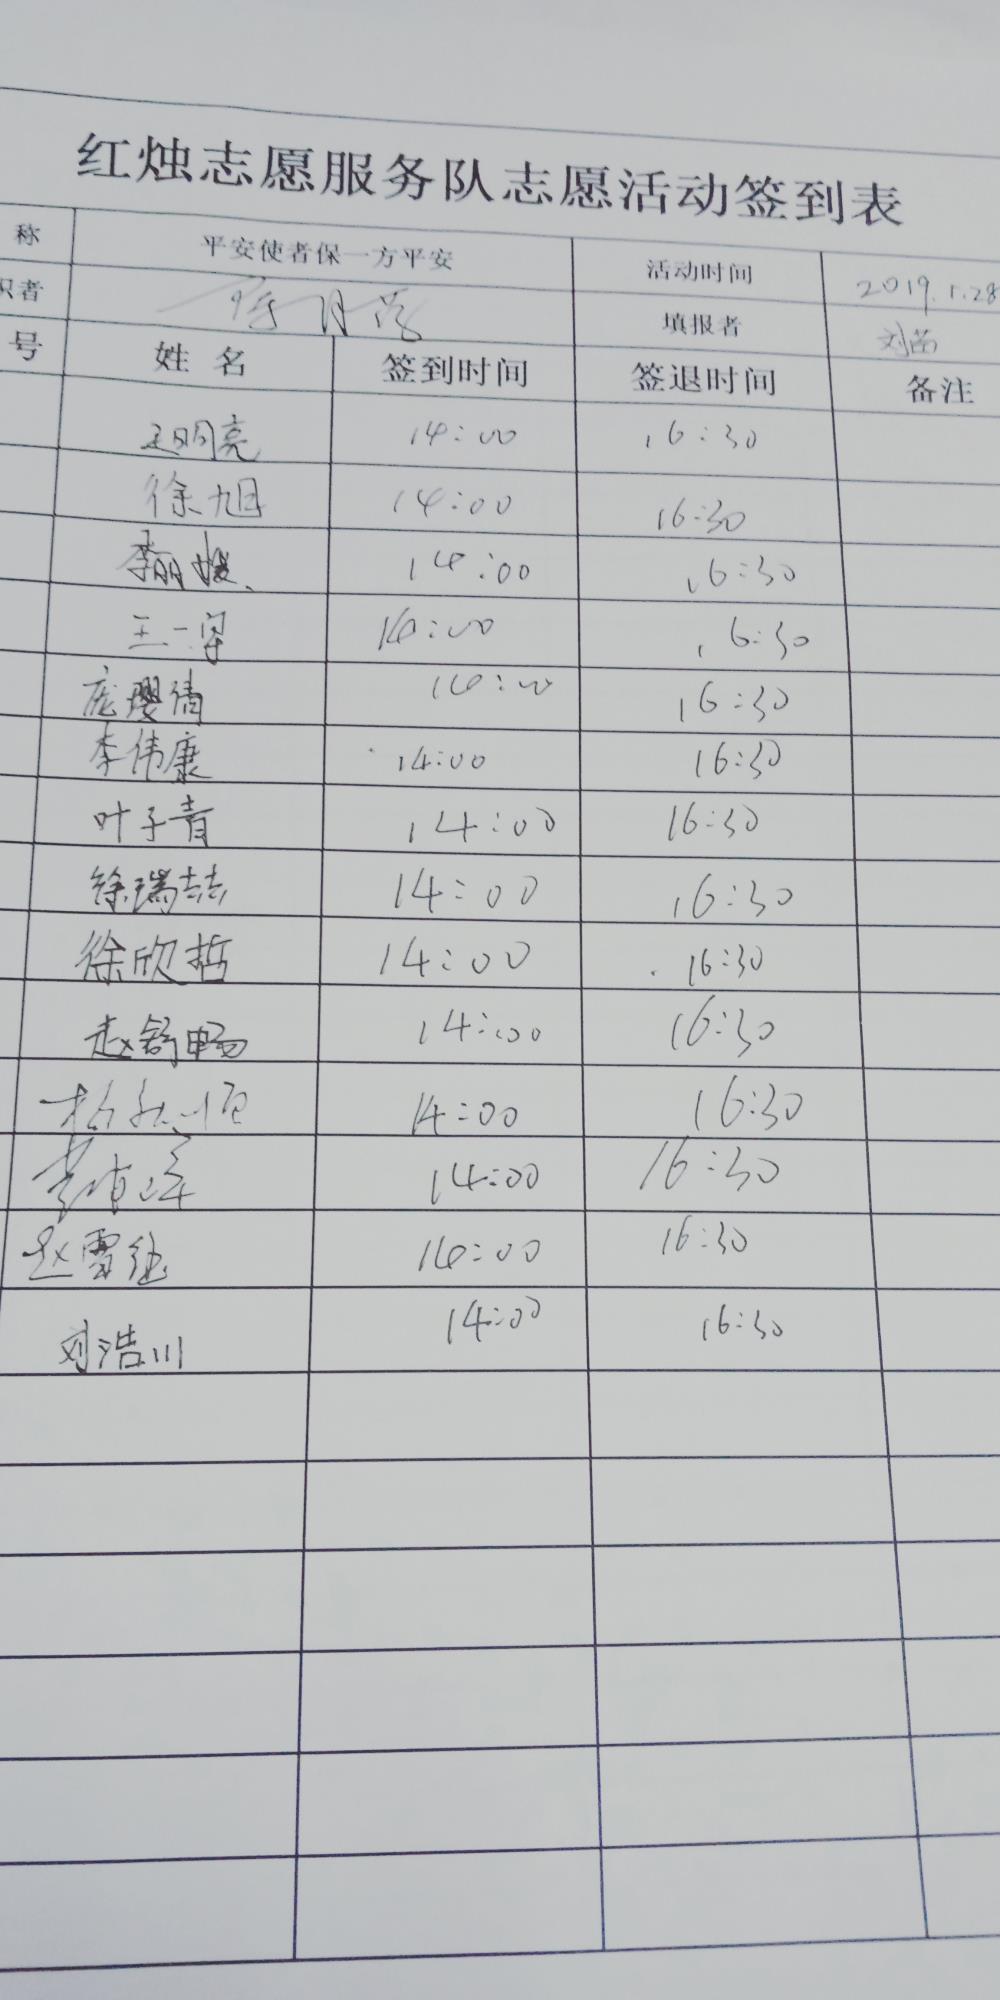 红烛志愿服务队志愿活动签到表
称 平安使者保一方平安 活动时间 2019.1.28
织者 填报者 刘茵
号 姓名 签到时间 签退时间 备注
王明亮 14:00 16:30
徐旭 14:00 16:30
李丽媛 14:00 16:30
王一宇 14:00 16:30
庞璎倩 14:00 16:30
李伟康 14:00 16:30
叶子青 14:00 16:30
徐瑞喆 14:00 16:30
徐欣哲 14:00 16:30
赵舒畅 14:00 16:30
14:00 16:30
14:00 16:30
赵雪纯 14:00 16:30
刘浩川 14:00 16:30